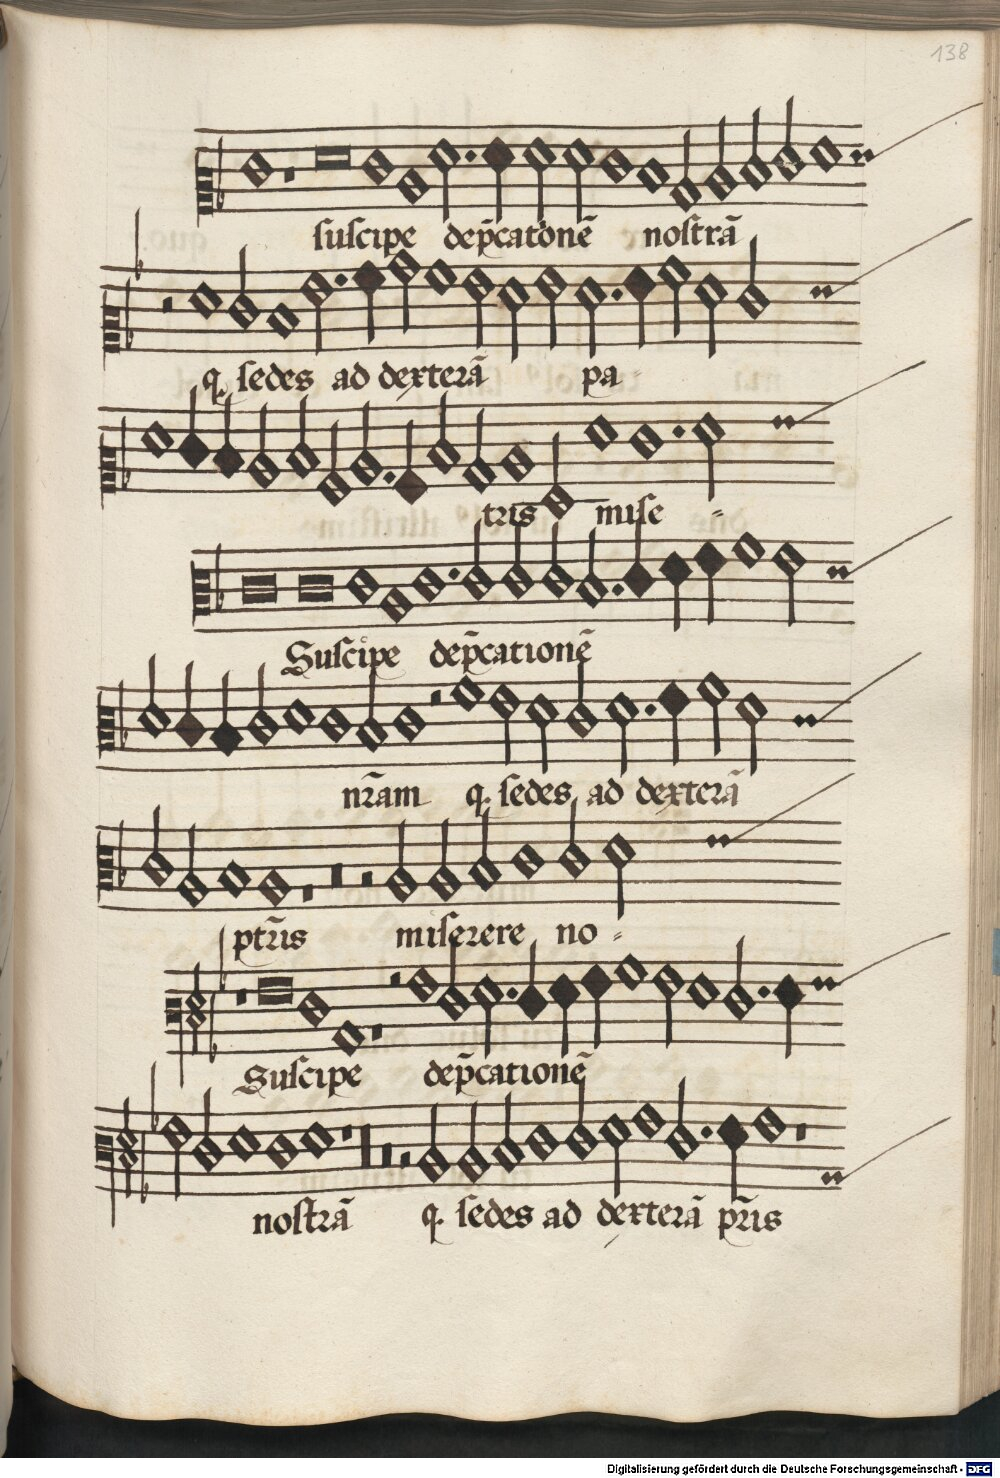 138
suſcipe dep̄catōnē noſtrā
q. ſedes ad dexterā pa
tris miſe -
Suſcipe dep̄cationē
nr̄am q. ſedes ad dexterā
ptr̄is miſerere no -
Suſcipe dep̄cationē
noſtrā q. ſedes ad dexterā pr̄is
Digitalisierung gefördert durch die Deutsche Forschungsgemeinschaft - DFG